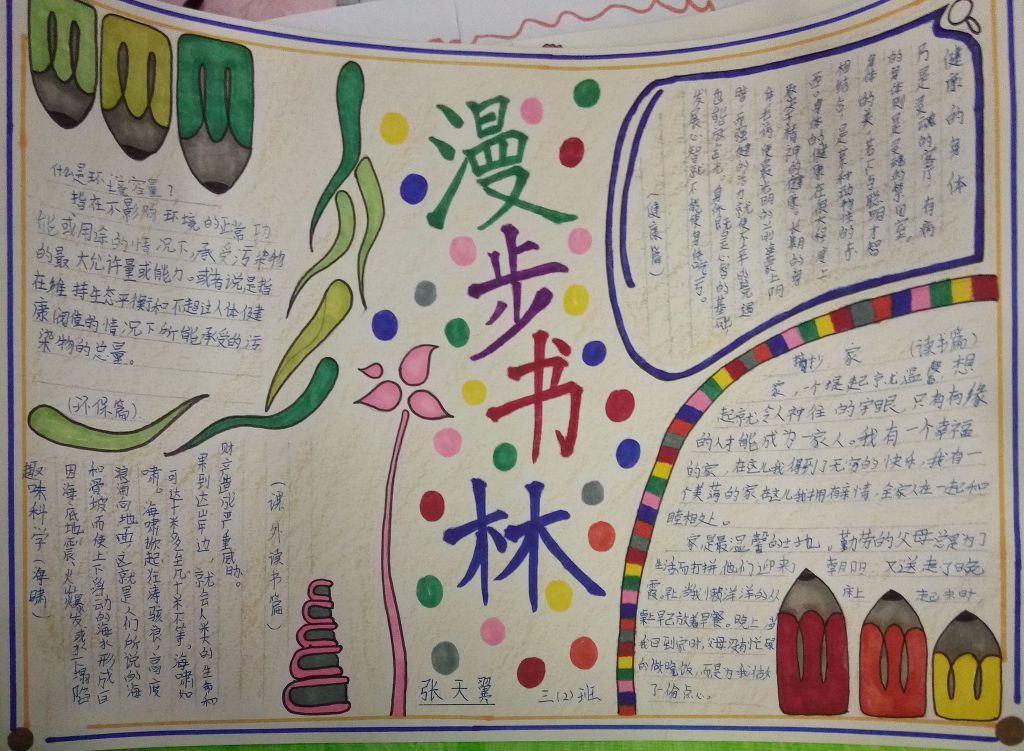 漫步书林
张天翼
三(2)班
什么是环境容量?
指在不影响环境的正常功
能或用途的情况下,承受污染物
的最大允许量或能力。或者说是指
在维持生态平衡和不超过人体健
康阈值的情况下所能承受的污
染物的总量。
(环保篇)
趣味科学海啸
因海底地震、火山爆发或水下塌陷
和滑坡而使上下浮动的海水形成巨
浪涌向地面,这就是人们所说的海
啸。海啸掀起狂涛骇浪,高度
可达十米多至几十米不等。海啸如
果到达岸边,就会人类的生命和
财产造成严重威胁。
(课外读书篇)
健康的身体
乃是灵魂的客厅,有病
的身体则是灵魂的禁闭室
身体的美,若不与聪明才智
相结合,是某种动物性的东
西。身体的健康在很大程度上
取决于精神的健康。
(健康篇)
家 (读书篇)
家,一个提起就温馨,想
起就令人神往的字眼,只有有缘
的人才能成为一家人。我有一个幸福
的家,在这儿我得到了无穷的快乐,我有一
个美满的家在这儿我拥有亲情,全家人在一起和
睦相处。
家是最温馨的土地,勤劳的父母总是为了
生活而打拼他们迎来了朝阳又送走了晚
霞。当我懒洋洋的从床上起来时
早已放着早餐。晚上当
我回到家时,父母没有忙碌
的做晚饭,而是为我做
了一偷点心。